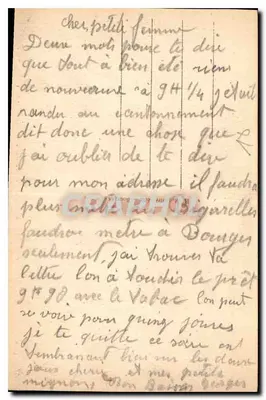 cher petite femme
Deux mots pour te dire
que tout à bien été rien
de nouveaux à 9H 1/4 j'étuit
randu au cantonnement
dit donc une chose que
j'ai oublier de te dire
pour mon adresse il faudra
plus mettre les
faudra metre à Bourges
seulement, j'ai trouver ta
lettre l'on à toucher le prêt
9 f 90, avec le tabac l'on peut
se voir pour quinz joures
je te quitte ce soire en
t'embrassant bien sur les deux
joues cherie et mes petits
mignons Bon Baiser Georges